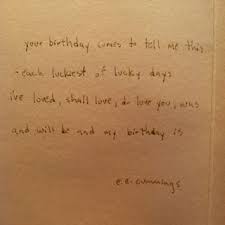 your birthday comes to tell me this
-each luckiest of lucky days
i've loved, shall love, do love you, was
and will be and my birthday is
e.e. cummings